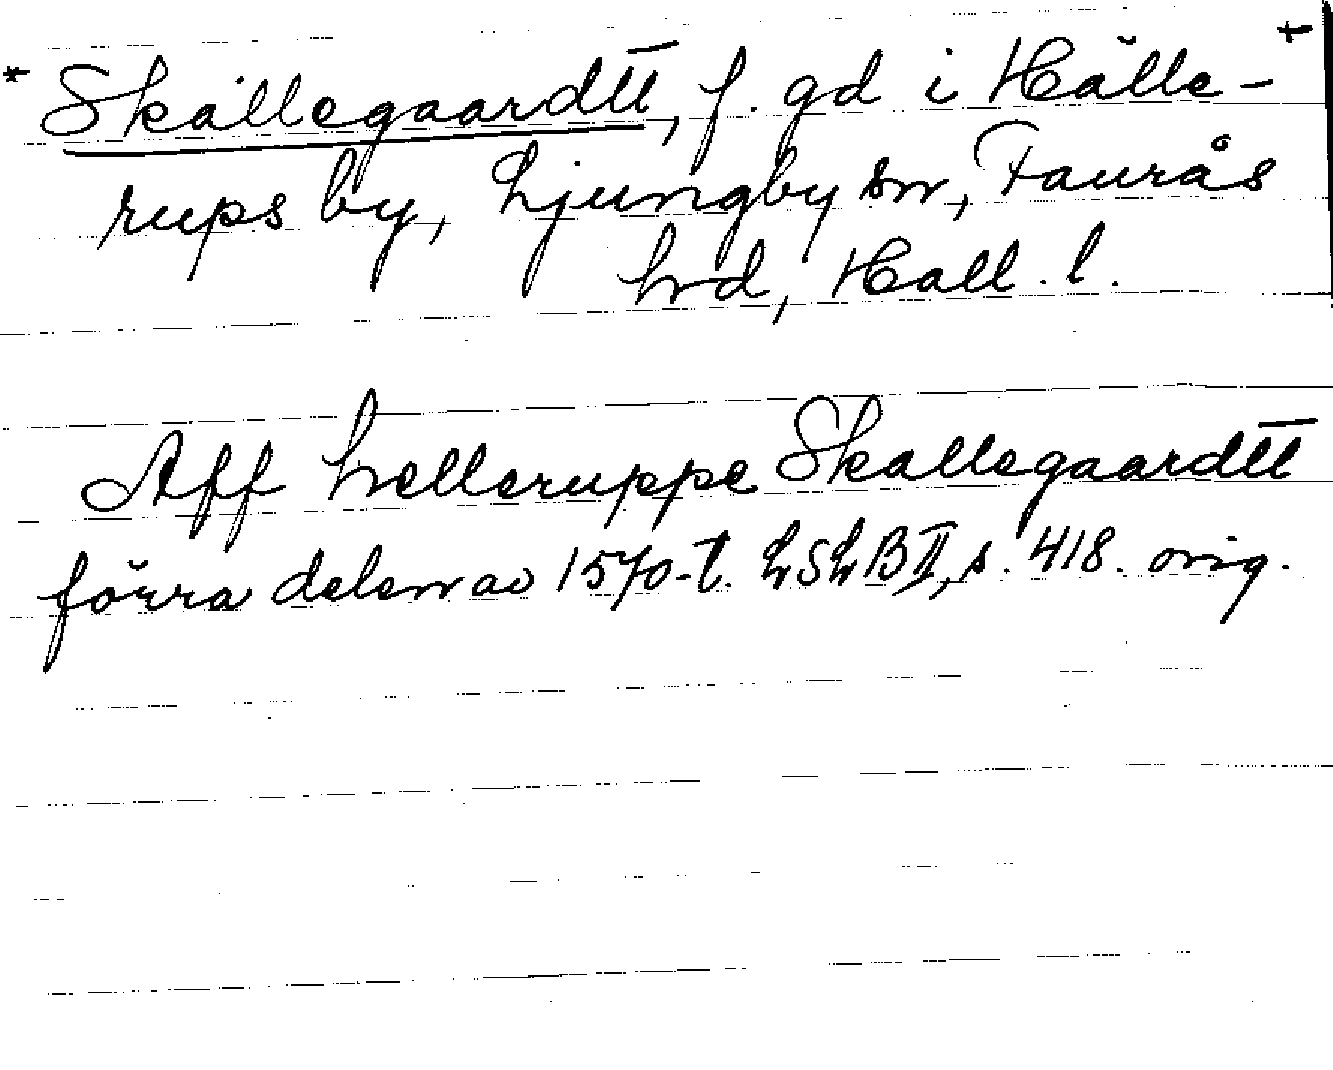 * Skallegaardtt, f. gd i Hälle- +
rups by, Ljungby sn, Faurås
hrd, Hall. l.
Aff helleruppe Skallegaardtt
förra delen av 1570-t. LSLB II, s. 418. orig.